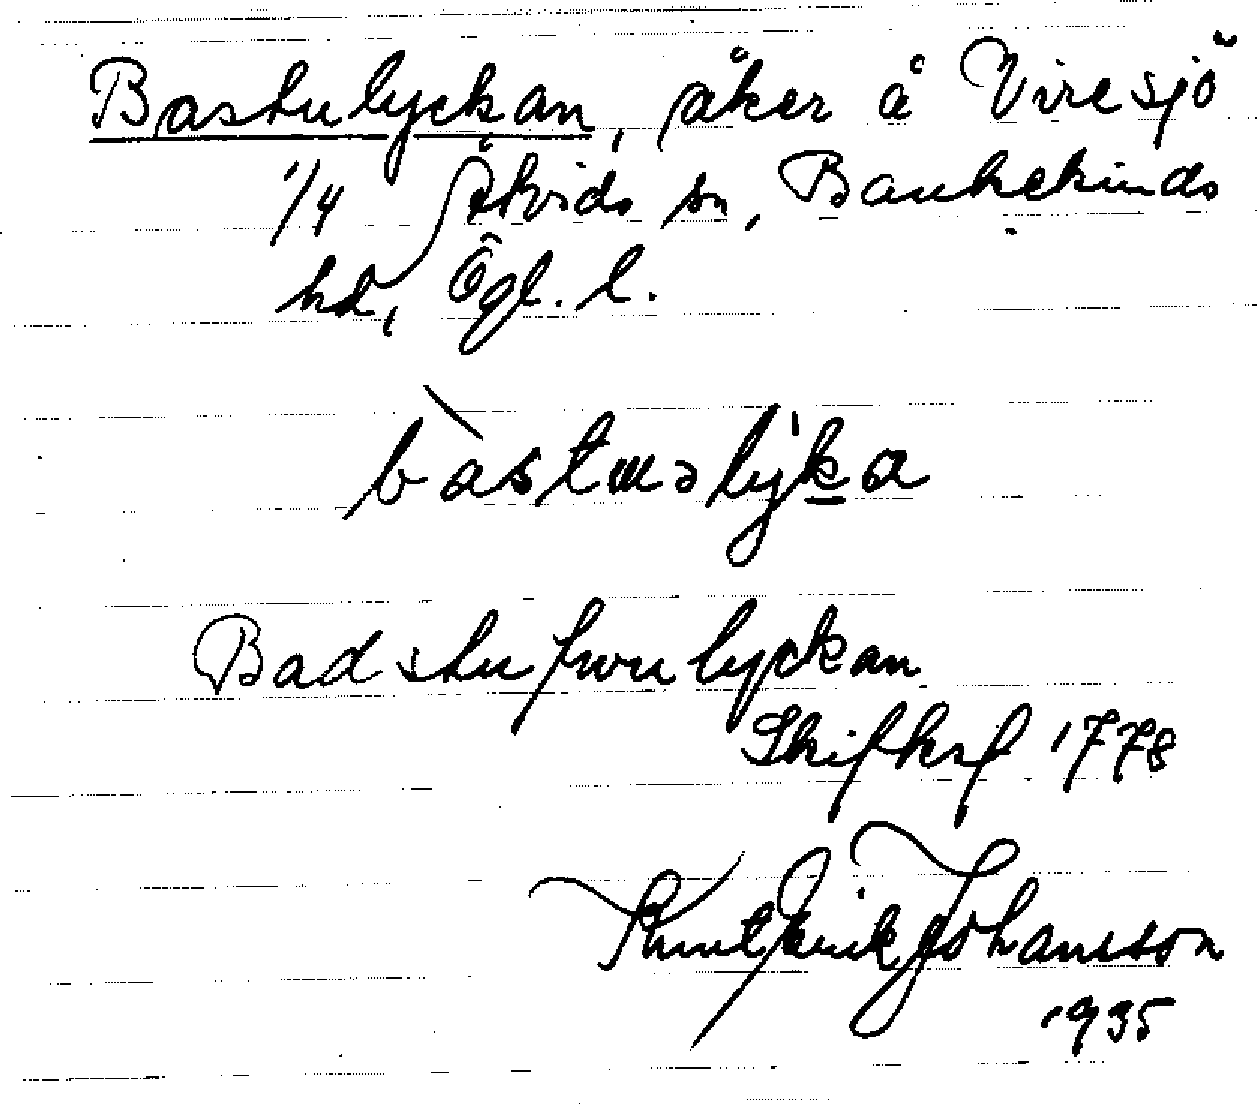 Bastulyckan, åker å Viresjö
1/4 Åtvids sn, Bankekinds
hd, Ögl. l.
bàstuəlyka
Badstufwulyckan
Skifksf 1778
Knut Erik Johansson
1935